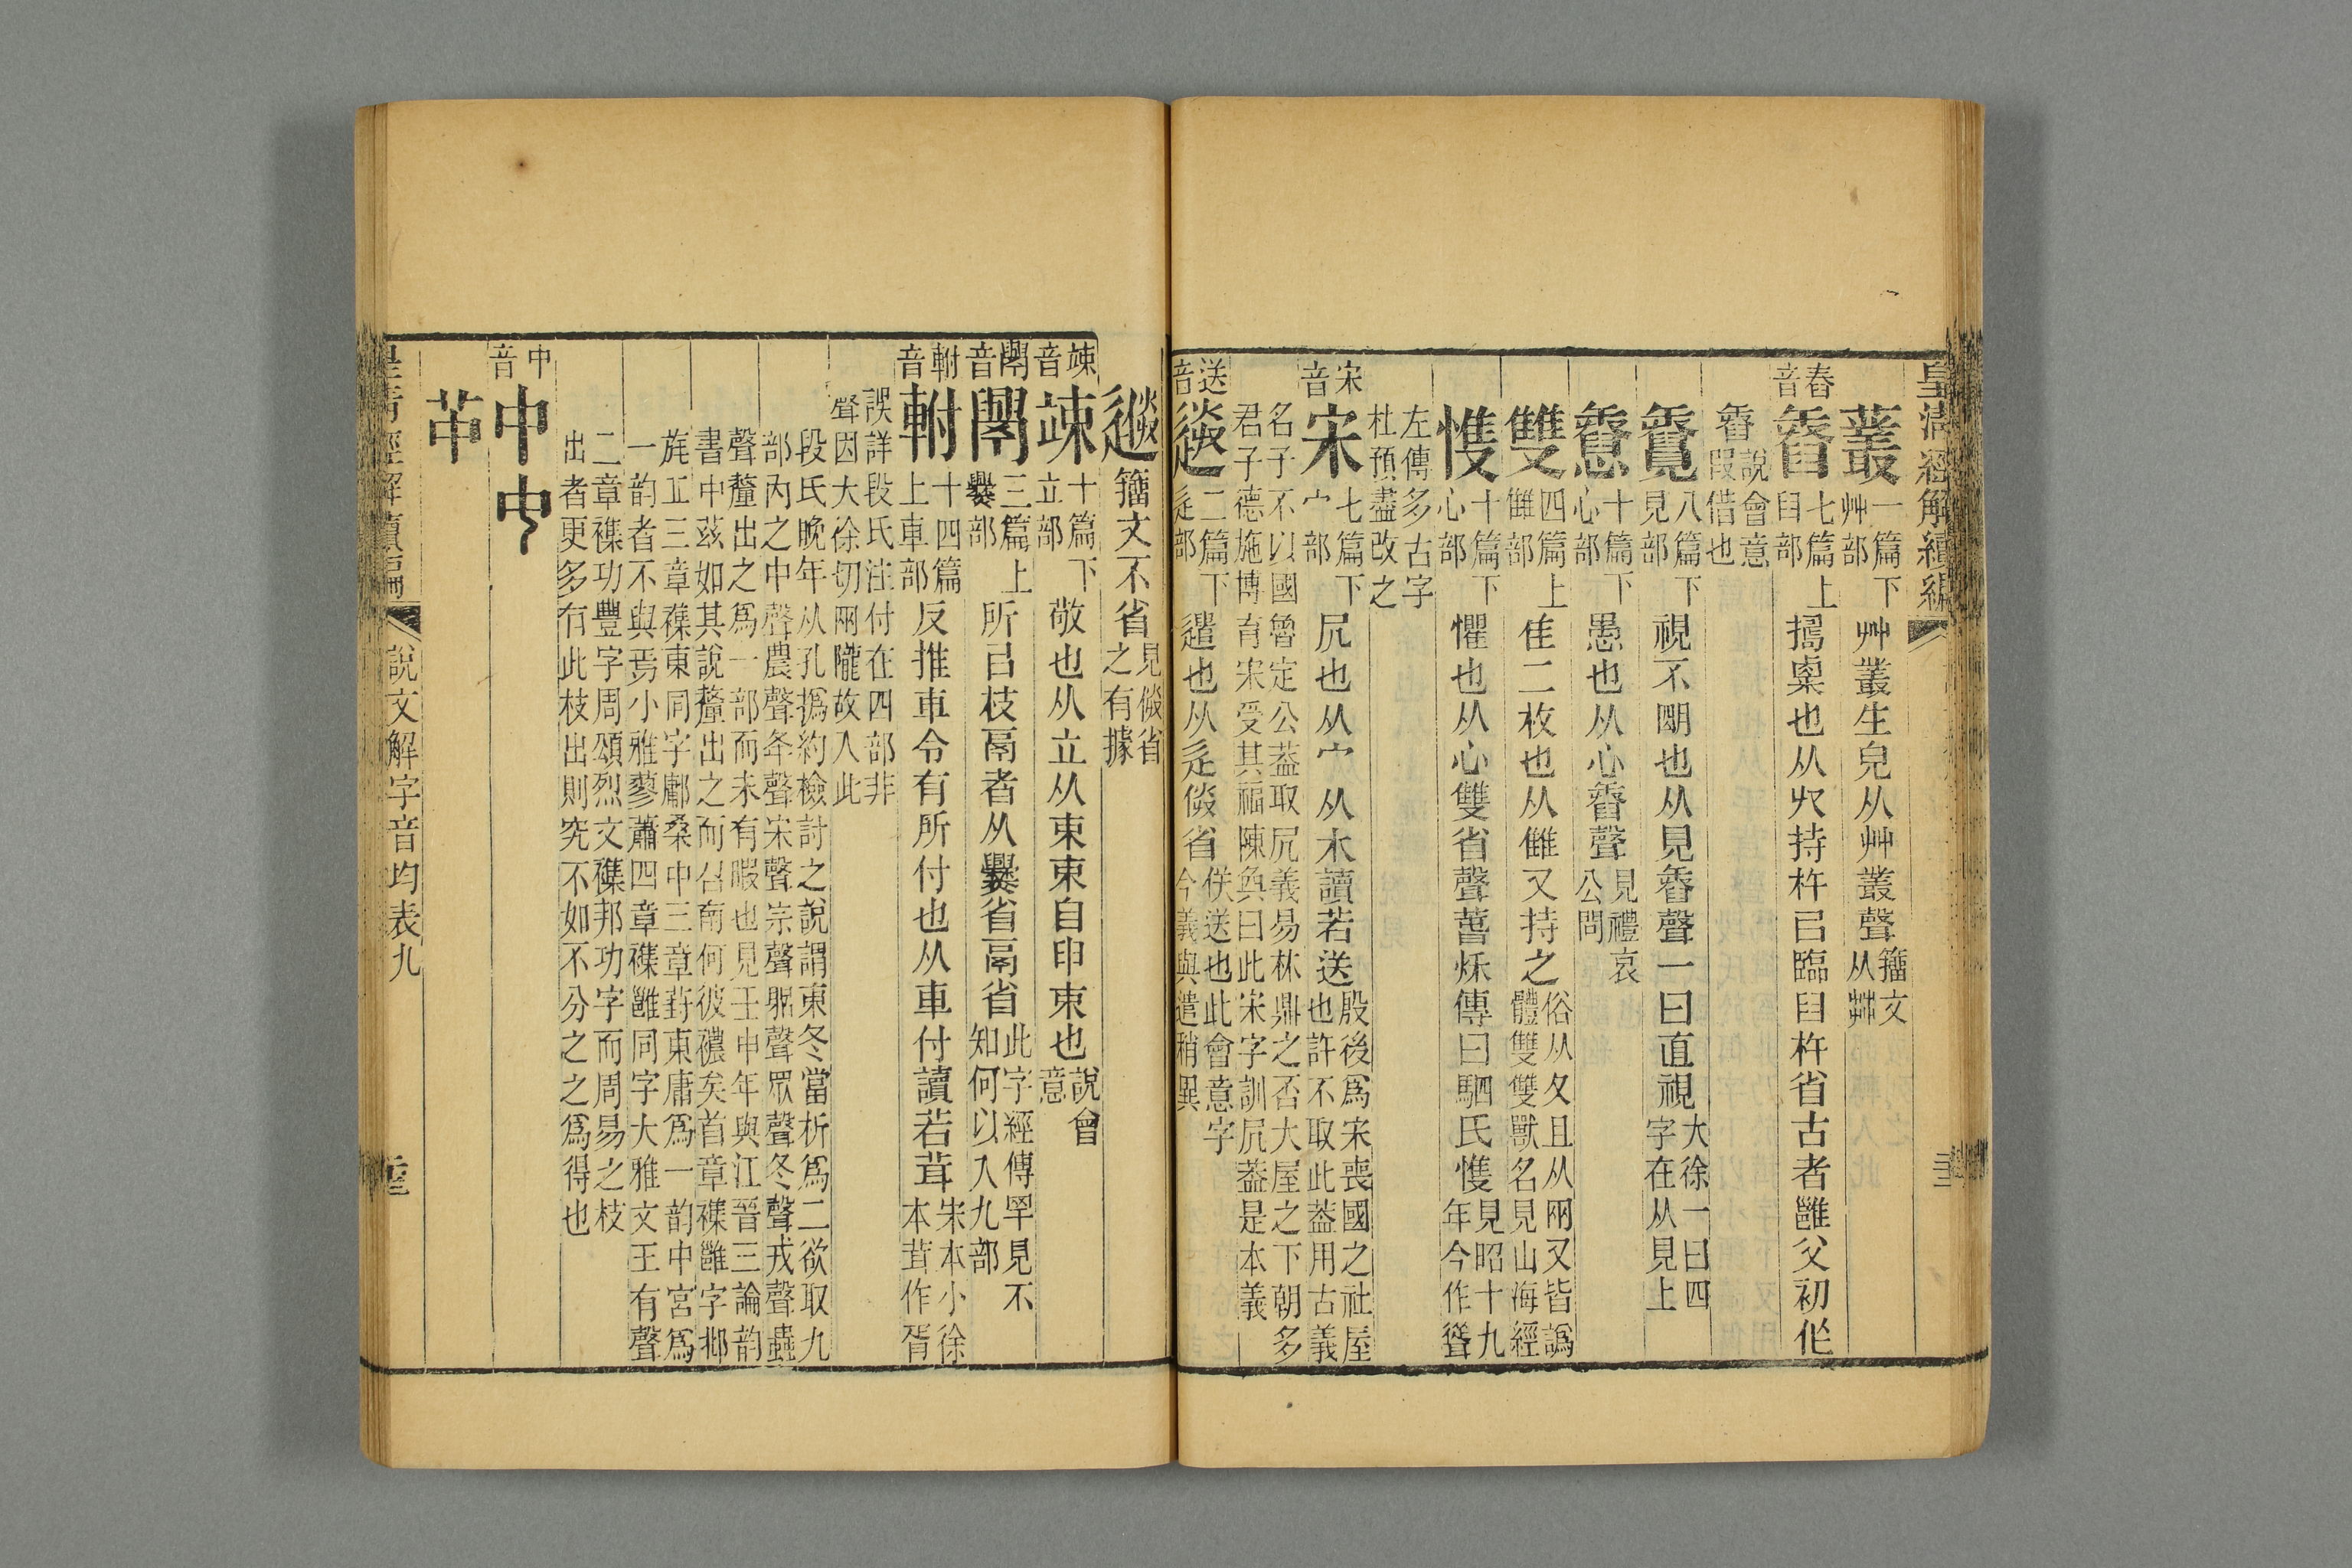 皇清經解續編
叢一篇下艸部艸叢生皃从艸叢聲籒文从茻
舂音
舂七篇上臼部擣粟也从廾持杵㠯臨臼杵省古者雝父初作
舂說會意叚借也
覩八篇下見部視不朙也从見舂聲一曰直視大徐一曰四字在从見上
惷十篇下心部愚也从心舂聲見禮哀公問
雙四篇上雔部隹二枚也从雔又持之俗从攵且从兩又皆譌體雙雙獸名見山海經
愯十篇下心部懼也从心雙省聲蓸秌傳曰駟氏愯見昭十九年今作聳
左傳多古字杜預盡改之
宋音
宋七篇下宀部凥也从宀从木讀若送殷後爲宋喪國之社屋也許不取此葢用古義
名子不以國魯定公葢取凥義易林鼎之否大屋之下朝多君子德施博育宋受其福陳奐曰此宋字訓凥葢是本義
送音
送二篇下辵部遣也从辵倂省佚送也此會意字今義與遣稍異
籒文不省見倂省之有據
竦音
竦十篇下立部敬也从立从束束自申束也說會意
䦥音
三篇上爨部所㠯枝鬲者从爨省鬲省此字經傳罕見不知何以入九部
軵音
軵十四篇上車部反推車令有所付也从車付讀若茸宋本小徐本茸作胥
誤詳段氏注付在四部非聲因大徐切兩隴故入此
段氏晚年从孔撝約檢討之說謂東冬當析爲二欲取九部內之中聲農聲夅聲宋聲宗聲躳聲眾聲冬聲戎聲蟲
聲釐出之爲一部而未有暇也見壬申年與江晉三論韵書中茲如其說釐出之而召南何彼穠矣首章襍雝字邶
旄丘三章襍東同字鄘桑中三章葑東庸爲一韵中宮爲一韵者不與焉小雅蓼蕭四章襍雝同字大雅文王有聲
二章襍功豐字周頌烈文襍邦功字而周易之枝出者更多有此枝出則究不如不分之之爲得也
中音
中𠁧
𠁩
皇清經解續編
說文解字音均表九